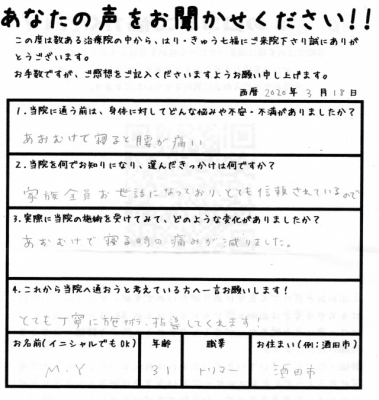 あなたの声をお聞かせください!!
この度は数ある治療院の中から、はり・きゅう七福にご来院下さり誠にありが
とうございます。
お手数ですが、ご感想をご記入くださいますようお願い申し上げます。
西暦 2020年 3月 18日
1.当院に通う前は、身体に対してどんな悩みや不安・不満がありましたか?
あおむけで寝ると腰が痛い
2.当院を何でお知りになり、選んだきっかけは何ですか?
家族全員お世話になっており、とても信頼されているので
3.実際に当院の施術を受けてみて、どのような変化がありましたか?
あおむけで寝る時の痛みが減りました。
4.これから当院へ通おうと考えている方へ一言お願いします!
とても丁寧に施術、指導してくれます!
お名前(イニシャルでもOK) 年齢 職業 お住まい(例:酒田市)
M.Y 31 トリマー 酒田市